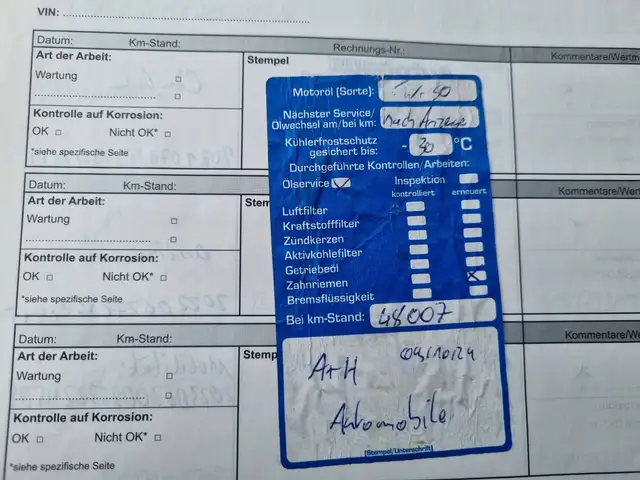 VIN:
Datum: Km-Stand: Rechnungs-Nr.: Kommentare/Wertm
Art der Arbeit: Stempel
Wartung
Kontrolle auf Korrosion:
OK Nicht OK*
*siehe spezifische Seite
Datum:
Art der Arbeit: Stem
Wartung
Kontrolle auf Korrosion:
OK Nicht OK*
*siehe spezifische Seite
Kommentare/Wert
Datum: Km-Stand:
Art der Arbeit: Stemp
Wartung
Kontrolle auf Korrosion:
OK Nicht OK*
*siehe spezifische Seite
Kommentare/We
Motoröl [Sorte]:
Nächster Service/
Ölwechsel am/bei km: Nach Anzeige
Kühlerfrostschutz
gesichert bis: - 30 °C
Durchgeführte Kontrollen/Arbeiten:
Ölservice Inspektion
kontrolliert erneuert
Luftfilter
Kraftstofffilter
Zündkerzen
Aktivkohlefilter
Getriebeöl
Zahnriemen
Bremsflüssigkeit
Bei km-Stand: 48007
A+H 09/10/24
Automobile
[Stempel/Unterschrift]